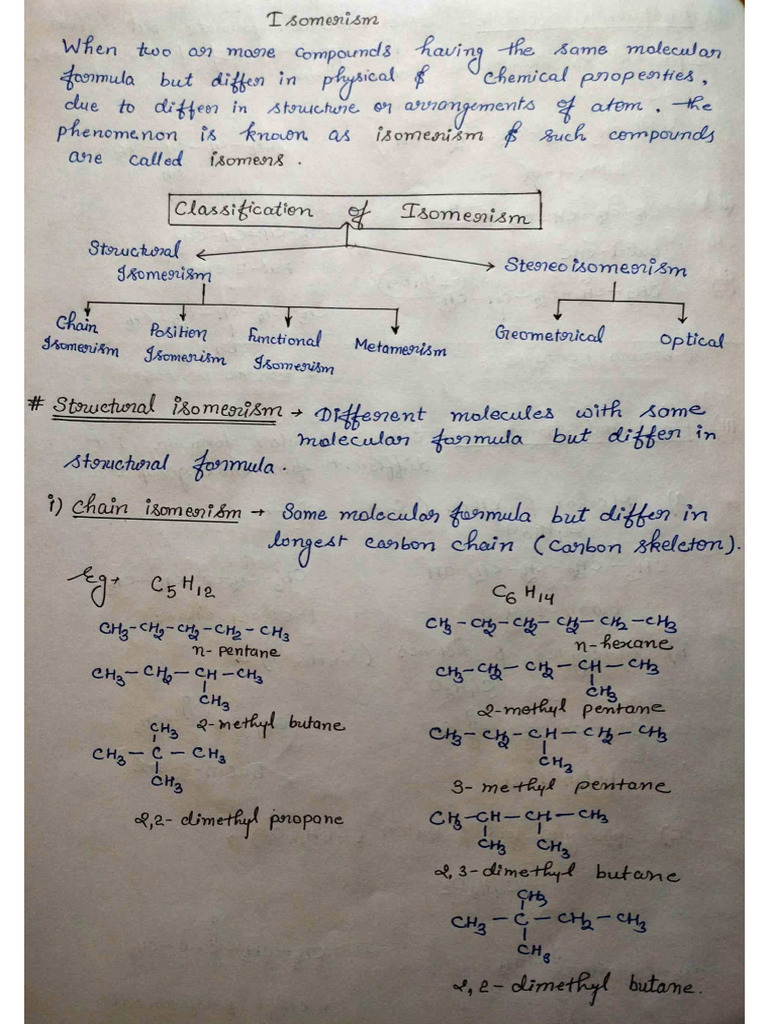 Isomerism
When two or more compounds having the same molecular
formula but differ in physical & chemical properties,
due to differ in structure or arrangements of atom. the
phenomenon is known as isomerism & such compounds
are called isomers.
Classification of Isomerism
Structural
Isomerism
Stereoisomerism
Chain
Isomerism
Position
Isomerism
Functional
Isomerism
Metamerism
Geometrical
Optical
# Structural isomerism → Different molecules with same
molecular formula but differ in
structural formula.
i) Chain isomerism → Same molecular formula but differ in
longest carbon chain (carbon skeleton).
Eg→ C5H12
CH3-CH2-CH2-CH2-CH3
n-pentane
CH3-CH2-CH-CH3
CH3
2-methyl butane
CH3
CH3-C-CH3
CH3
2,2-dimethyl propane
C6H14
CH3-CH2-CH2-CH2-CH2-CH3
n-hexane
CH3-CH2-CH2-CH-CH3
CH3
2-methyl pentane
CH3-CH2-CH-CH2-CH3
CH3
3-methyl pentane
CH3-CH-CH-CH3
CH3 CH3
2,3-dimethyl butane
CH3
CH3-C-CH2-CH3
CH3
2,2-dimethyl butane.